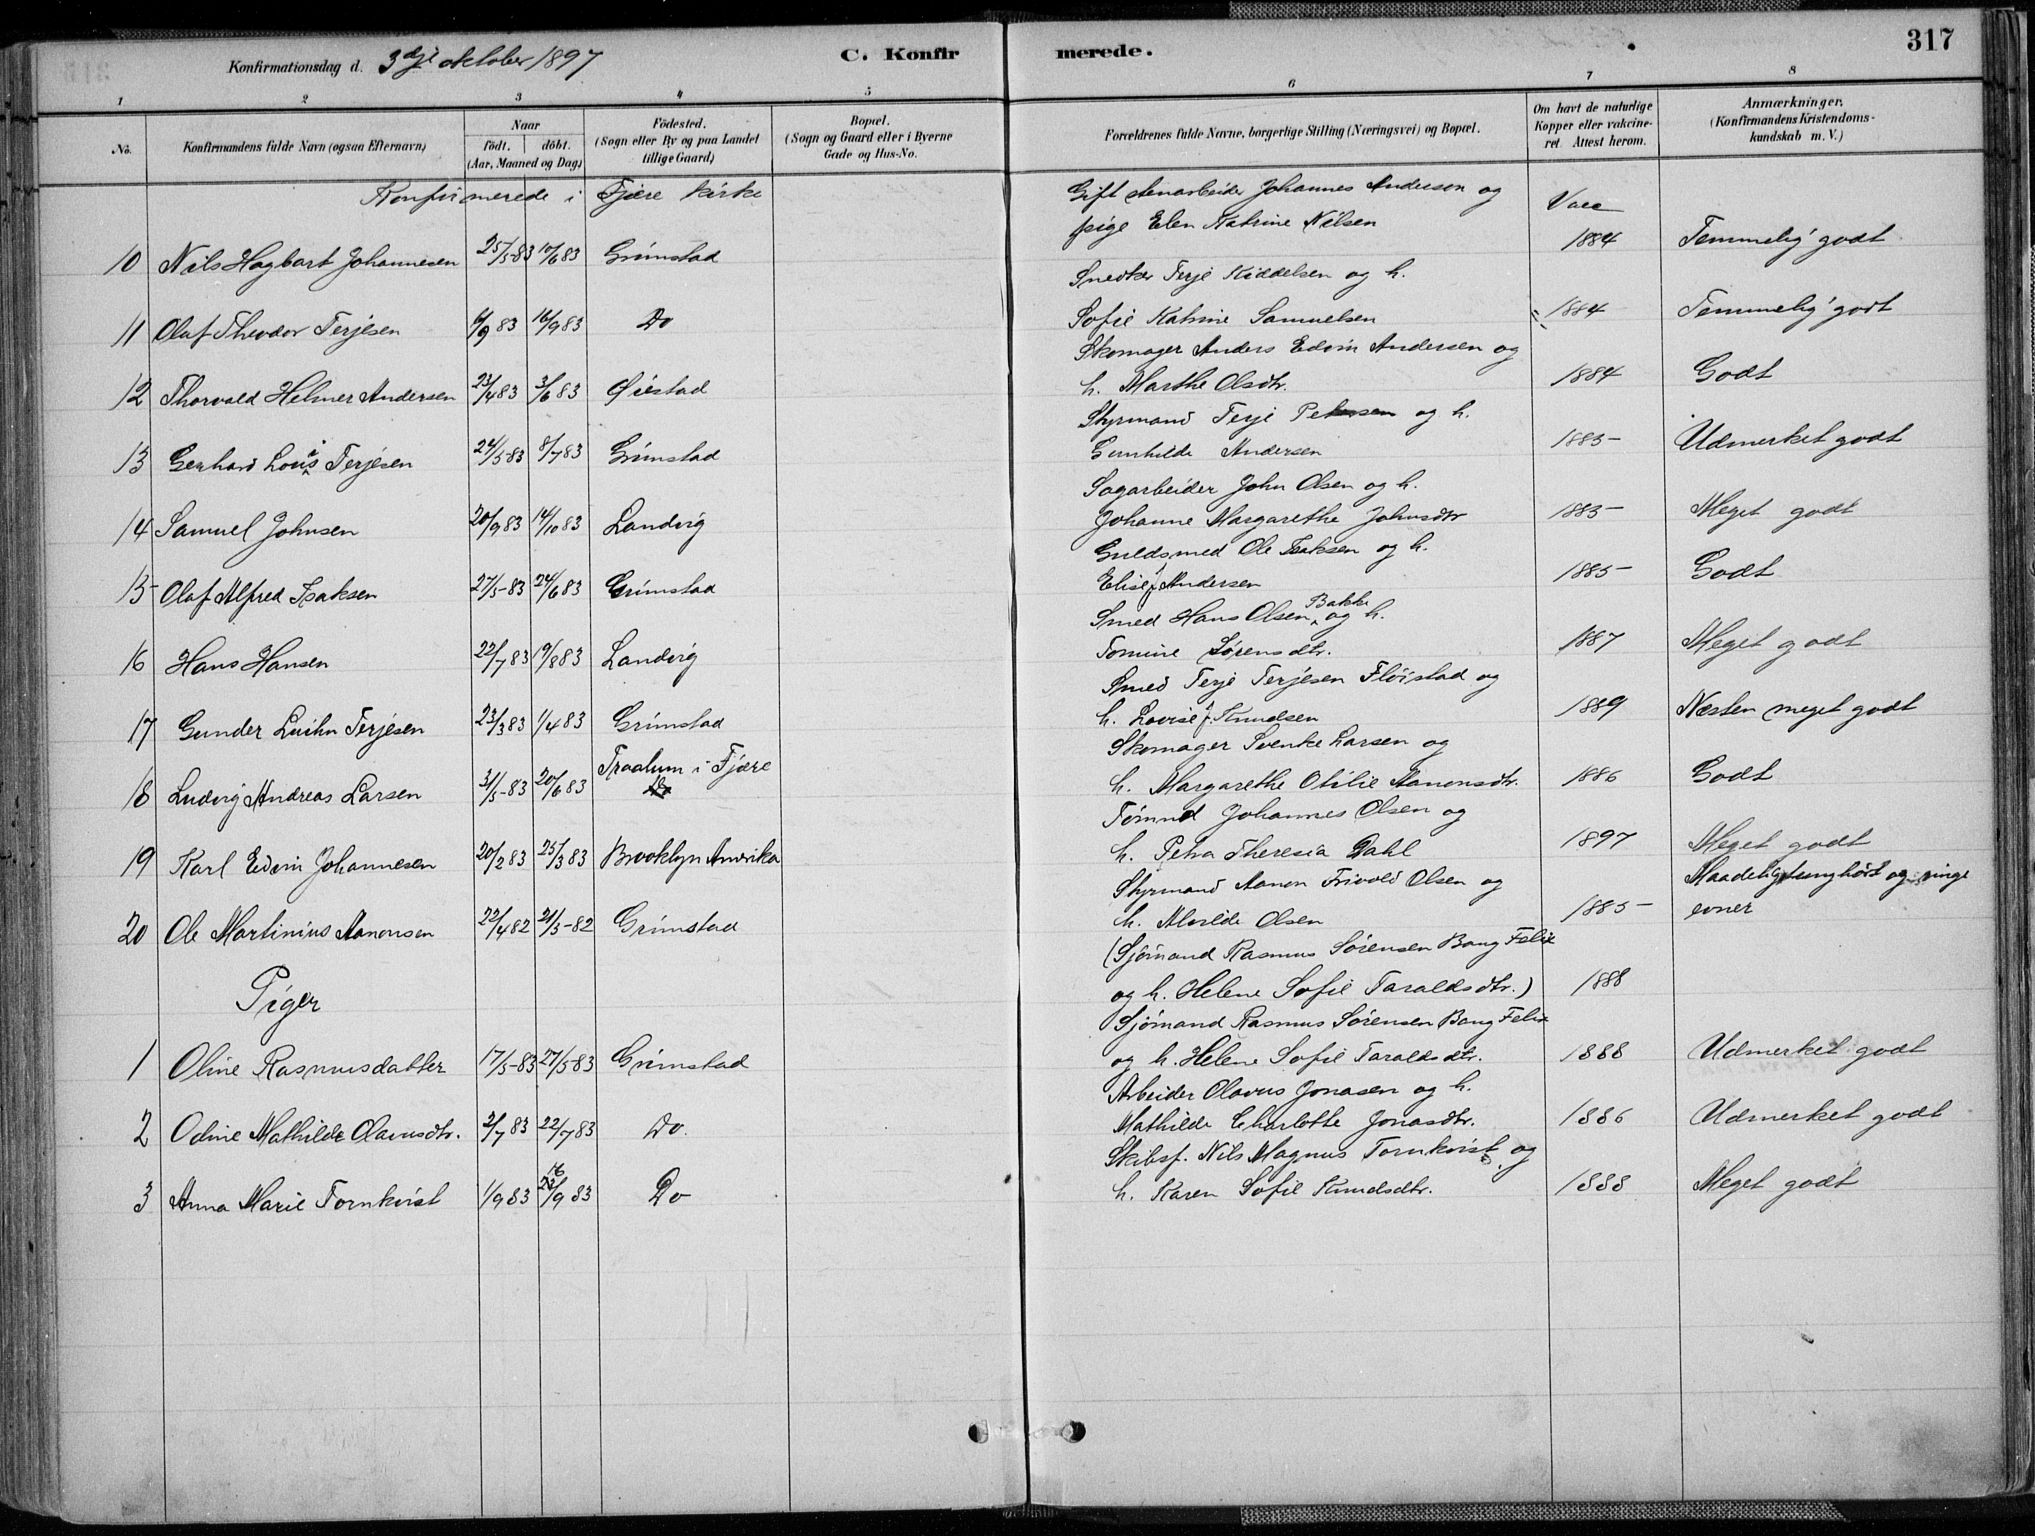 Konfirmationsdag d. 3dje oktober 1897 C. Konfirmerede. 317
1 2 3 4 5 6 7 8
No. Konfirmandens fulde Navn (ogsaa Efternavn) Naar født. døbt. (Aar, Maaned og Dag) Fødested. (Sogn eller By og paa Landet tillige Gaard) Bopæl. (Sogn og Gaard eller i Byerne Gade og Hus-No. Forældrenes fulde Navne, borgerlige Stilling (Næringsvei) og Bopæl. Om havt de naturlige Kopper eller vakcineret. Attest herom. Anmærkninger. (Konfirmandens Kristendomskundskab m. V.)
Konfirmerede i Fjære kirke
Gift stenarbeider Johannes Anderson og Vacc
pige Elen Katrine Nilsen
10 Nils Hagbart Johannesen 25/5-83 10/6 83 Grimstad 1884 Temmelig godt
Snedker Terje Kiddelsen og h.
11 Olaf Theodor Terjesen 6/9 83 16/9 83 Do Sofie Katrine Samuelsen 1884 Temmelig godt
Skomager Anders Edvin Andersen og
12 Thorvald Helmer Andersen 23/4 83 3/6 83 Øiestad h. Marthe Olsdtr. 1884 Godt
Styrmand Terje Petersen og h.
13 Gerhard Louis Terjesen 24/5-83 8/7 83 Grimstad Gunhilde Andersen 1885- Udmerket godt
Sagarbeider John Olsen og h.
14 Samuel Johnsen 20/9 83 14/10 83 Landvig Johanne Margarethe Johnsdtr 1885- Meget godt
Guldsmed Ole Isaksen og h.
15- Olaf Alfred Isaksen 27/5-83 24/6 83 Grimstad Elise f Andersen 1885- Godt
Smed Hans Olsen Bakke og h.
16 Hans Hansen 22/7 83 19/8 83 Landvig Tomine Sørensdtr. 1887 Meget godt
Smed Terje Terjesen Fløistad og
17 Gunder Luihn Terjesen 23/3 83 1/4 83 Grimstad h. Lovise f Knudsen 1889 Næsten meget godt
Skomager Svenke Larsen og
18 Ludvig Andreas Larsen 31/5-83 20/6 83 Traalum i Fjære Do h. Margarethe Otilie Aanonsdtr. 1886 Godt
Tømmd Johannes Olsen og
19 Karl Edvin Johannesen 20/2 83 25/3 83 Brooklyn Amerika h. Petra Theresia Dahl 1897 Meget godt
Styrmand Aanon Frivold Olsen og Maadelig, tunghørt og ringe
20 Ole Martinius Aanonsen 22/4 82 21/5-82 Grimstad h. Alvilde Olsen 1885- evner
(Sjømand Rasmus Sørensen Bang Felix
Piger og h. Helene Sofie Taraldsdtr.) 1888
Sjømand Rasmus Sørensen Bang Felix
1 Oline Rasmusdatter 17/5-83 27/5-83 Grimstad og h. Helene Sofie Taraldsdtr. 1888 Udmerket godt
Arbeider Olavus Jonasen og h.
2 Odine Mathilde Olavusdtr. 2/7 83 22/7 83 Do. Mathilde Charlotte Jonasdtr. 1886 Udmerket godt
Skibsf. Nils Magnus Tornkvist og
3 Anna Marie Tornkvist 1/9 83 16/9 83 Do h. Karen Sofie Knudsdtr. 1888 Meget godt